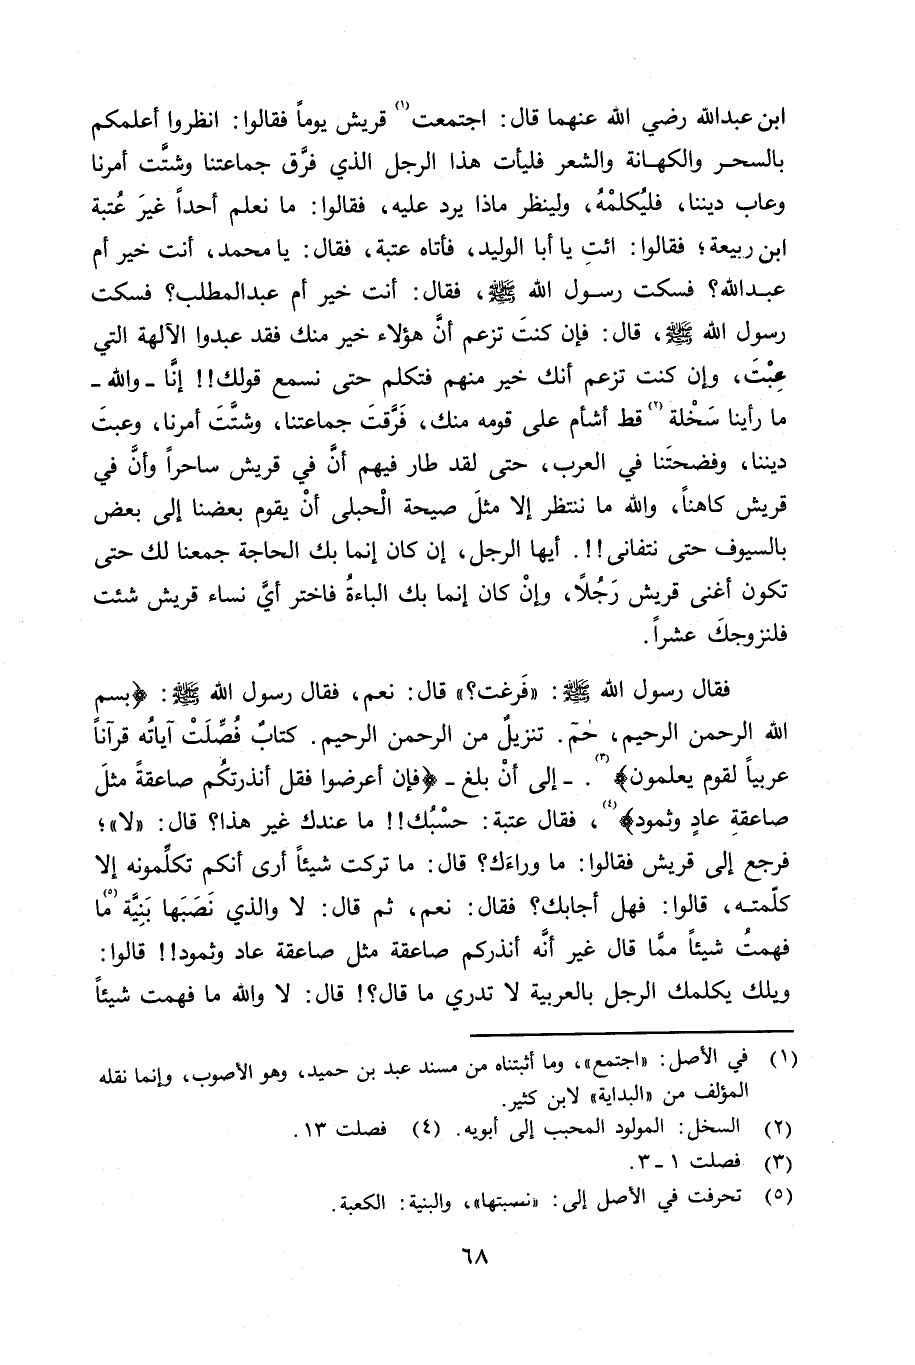 ابن عبدالله رضي الله عنهما قال: اجتمعت(١) قريش يوماً فقالوا: انظروا أعلمكم
بالسحر والكهانة والشعر فليأت هذا الرجل الذي فرَّق جماعتنا وشتَّت أمرنا
وعاب ديننا، فليُكلمْهُ، ولينظر ماذا يرد عليه، فقالوا: ما نعلم أحداً غيرَ عُتبة
ابن ربيعة؛ فقالوا: ائتِ يا أبا الوليد، فأتاه عتبة، فقال: يا محمد، أنت خير أم
عبدالله؟ فسكت رسول الله ﷺ، فقال: أنت خير أم عبدالمطلب؟ فسكت
رسول الله ﷺ، قال: فإن كنتَ تزعم أنَّ هؤلاء خير منك فقد عبدوا الآلهة التي
عِبْتَ، وإن كنت تزعم أنك خير منهم فتكلم حتى نسمع قولك!! إنَّا ـ والله ـ
ما رأينا سَخْلة(٢) قط أشأم على قومه منك، فَرَّقتَ جماعتنا، وشتَّتَ أمرنا، وعبتَ
ديننا، وفضحتَنا في العرب، حتى لقد طار فيهم أنَّ في قريش ساحراً وأنَّ في
قريش كاهناً، والله ما ننتظر إلا مثلَ صيحة الْحبلى أنْ يقوم بعضنا إلى بعض
بالسيوف حتى نتفانى!!. أيها الرجل، إن كان إنما بك الحاجة جمعنا لك حتى
تكون أغنى قريش رَجُلاً، وإنْ كان إنما بك الباءةُ فاختر أيَّ نساء قريش شئت
فلنزوجكَ عشراً.
فقال رسول الله ﷺ: «فَرغت؟» قال: نعم، فقال رسول الله ﷺ: ﴿بسم
الله الرحمن الرحيم، حٰمٓ. تنزيلٌ من الرحمن الرحيم. كتابٌ فُصِّلَتْ آياتُه قرآناً
عربياً لقوم يعلمون﴾(٣). ـ إلى أنْ بلغ ـ ﴿فإن أعرضوا فقل أنذرتكُم صاعقةً مثلَ
صاعقةِ عادٍ وثمود﴾(٤)، فقال عتبة: حسْبُك!! ما عندك غير هذا؟ قال: «لا»؛
فرجع إلى قريش فقالوا: ما وراءَك؟ قال: ما تركت شيئاً أرى أنكم تكلِّمونه إلا
كلّمته، قالوا: فهل أجابك؟ فقال: نعم، ثم قال: لا والذي نَصَبَها بَنِيَّة(٥) ما
فهمتُ شيئاً ممَّا قال غير أنَّه أنذركم صاعقة مثل صاعقة عاد وثمود!! قالوا:
ويلك يكلمك الرجل بالعربية لا تدري ما قال؟! قال: لا والله ما فهمت شيئاً
(١) في الأصل: «اجتمع»، وما أثبتناه من مسند عبد بن حميد، وهو الأصوب، وإنما نقله
المؤلف من «البداية» لابن كثير.
(٢) السخل: المولود المحبب إلى أبويه. (٤) فصلت ١٣.
(٣) فصلت ١ ـ ٣.
(٥) تحرفت في الأصل إلى: «نسبتها»، والبنية: الكعبة.
٦٨